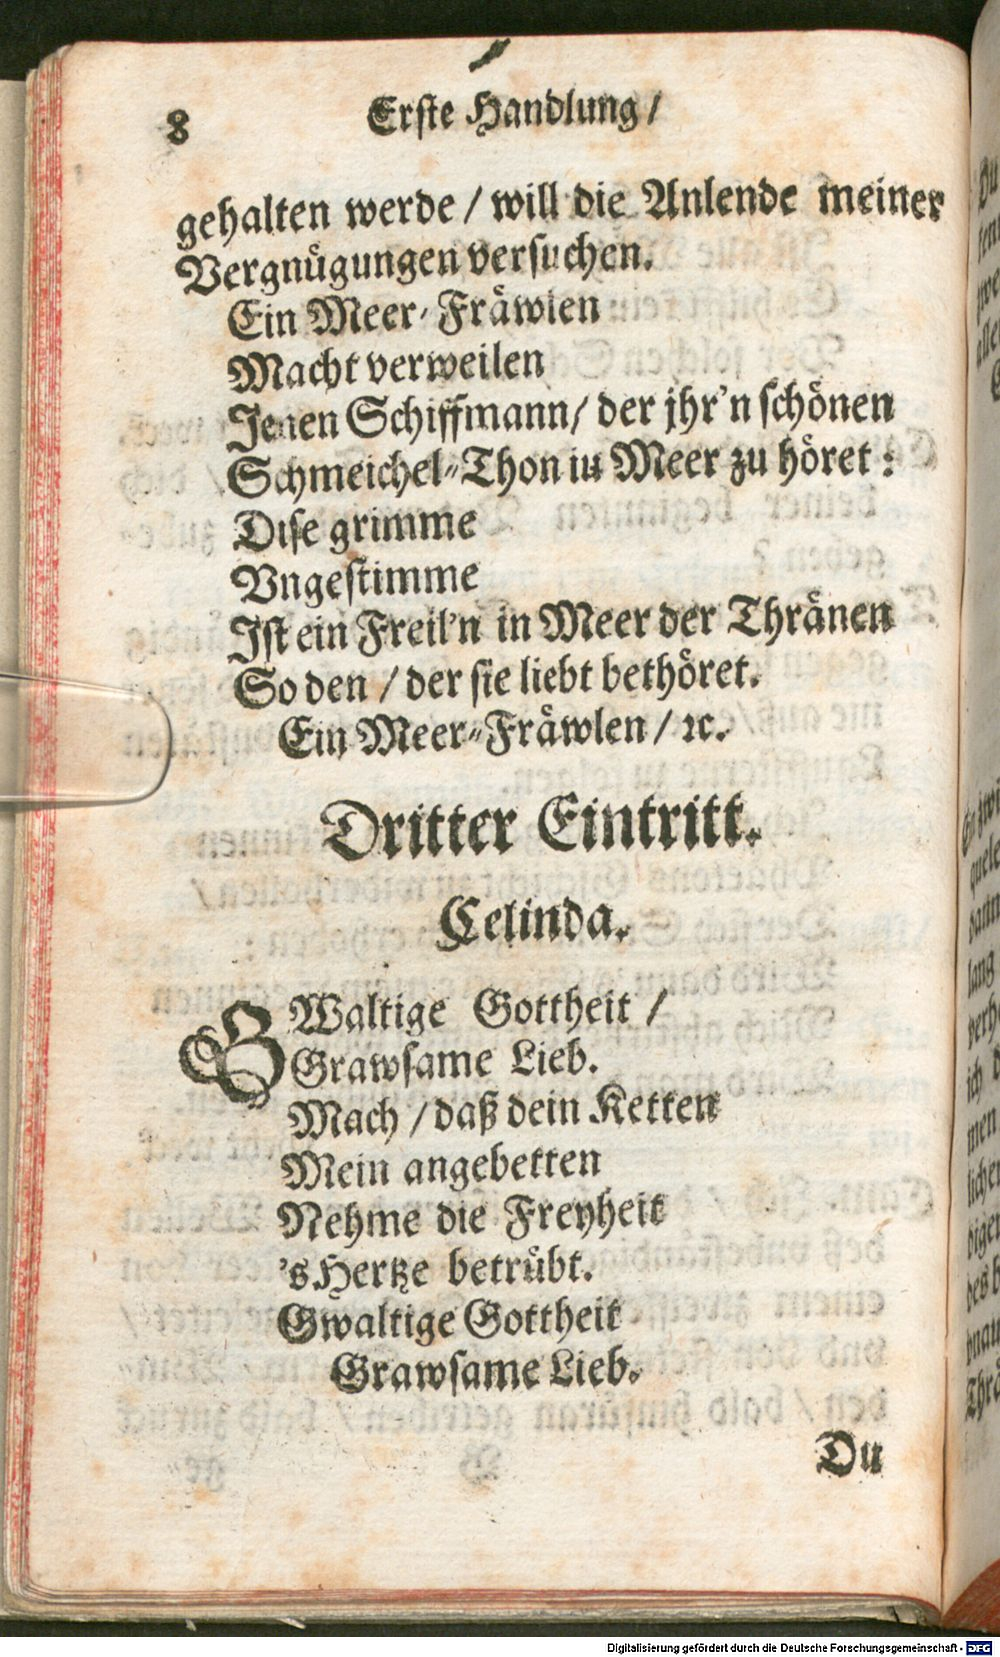 8 Erste Handlung /
gehalten werde / will die Anlende meiner
Vergnügungen versuchen.
Ein Meer-Fräwlen
Macht verweilen
Jenen Schiffmann / der jhr'n schönen
Schmeichel-Thon in Meer zu höret :
Dise grimme
Vngestimme
Ist ein Freil'n in Meer der Thränen
So den / der sie liebt bethöret.
Ein Meer-Fräwlen / ꝛc.
Dritter Eintritt.
Celinda.
GWaltige Gottheit /
Grawsame Lieb.
Mach / daß dein Ketten
Mein angebetten
Nehme die Freyheit
's Hertze betrübt.
Gwaltige Gottheit
Grawsame Lieb.
Du
Digitalisierung gefördert durch die Deutsche Forschungsgemeinschaft - DFG